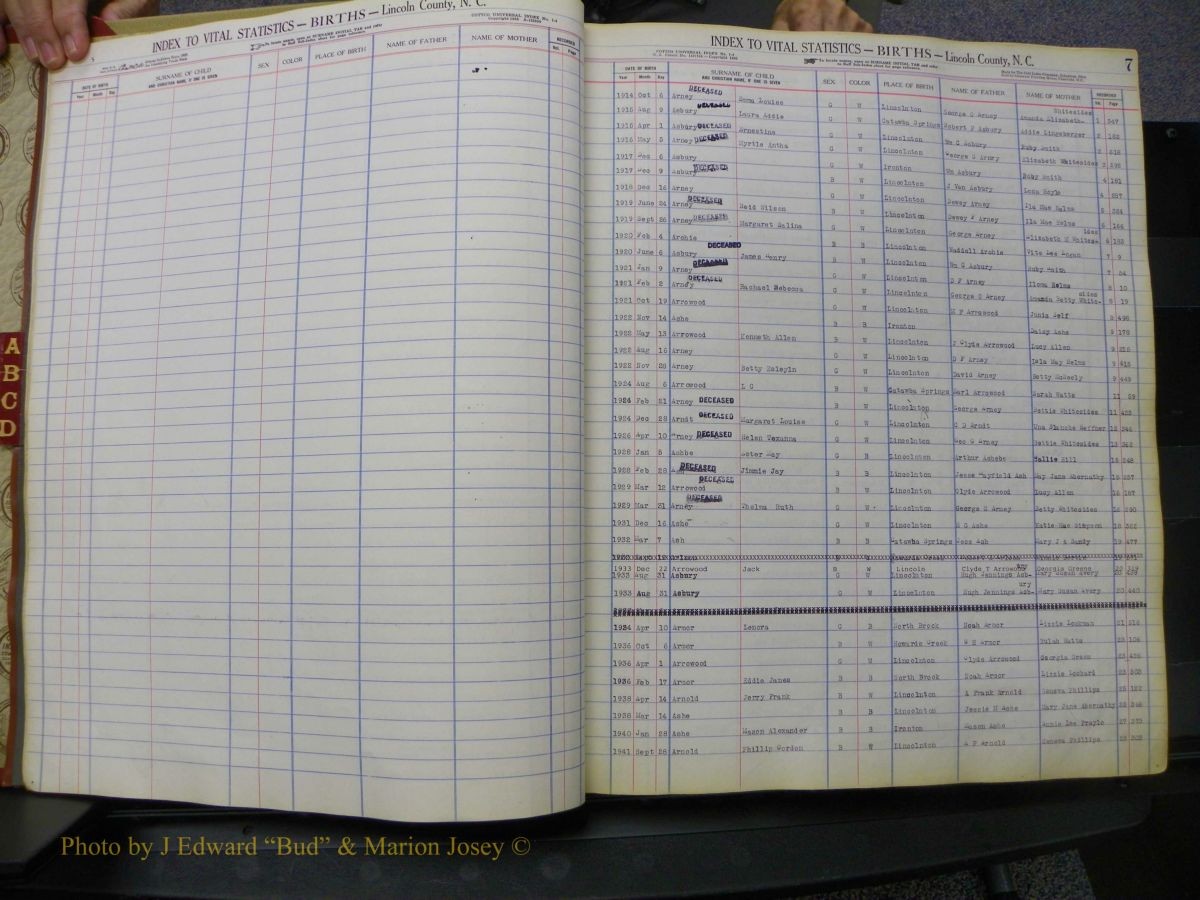 INDEX TO VITAL STATISTICS — BIRTHS — Lincoln County, N. C.
DATE OF BIRTH
Year Month Day
SURNAME OF CHILD
AND CHRISTIAN NAME, IF ONE IS GIVEN
SEX
COLOR
PLACE OF BIRTH
NAME OF FATHER
NAME OF MOTHER
RECORDED
Vol. Page
A
B
C
D
INDEX TO VITAL STATISTICS — BIRTHS — Lincoln County, N. C.
7
DATE OF BIRTH
Year Month Day
SURNAME OF CHILD
AND CHRISTIAN NAME, IF ONE IS GIVEN
SEX COLOR PLACE OF BIRTH NAME OF FATHER NAME OF MOTHER
RECORDED
Vol. Page
1914 Oct 6 Arney DECEASED Louise G W Lincolnton George S Arney Whitesides Amanda Elizabeth- 1 347
1915 Aug 9 Asbury DECEASED Laura Addie G W Catawba Springs Robert P Asbury Addie Lineberger 2 162
1916 Apr 1 Asbury DECEASED Ernestine G W Lincolnton Wm G Asbury Ruby Smith
1916 May 5 Arney DECEASED Myrtle G W Lincolnton George S Arney Elizabeth Whitesides
1917 Dec 6 Asbury G W Ironton Wm Asbury Ruby Smith 4 181
1917 Dec 9 Asbury DECEASED B W Lincolnton J Van Asbury Lona Hoyle
1918 Dec 16 Arney G W Lincolnton Dewey Arney Ila Mae Helms
1919 June 24 Arney DECEASED Reid Wilson B W Lincolnton Dewey F Arney Ila Mae Helms 6 164
1919 Sept 26 Arney DECEASED Margaret Salina G W Lincolnton George Arney Elizabeth M Whites- ides
1920 Feb 4 Archie B B Lincolnton Waddell Archie Vite Lee Logan 7 9
1920 June 6 Asbury DECEASED James Henry B W Lincolnton Wm G Asbury Ruby Smith
1921 Jan 9 Arney DECEASED G W Lincolnton D F Arney Helms
1921 Feb 2 Arney DECEASED Rachael Rebecca G W Lincolnton George S Arney Amanda Betty White- sides
1921 Oct 19 Arrowood G W Lincolnton M F Arrowood Junia Self
1922 Nov 14 Ashe B B Ironton Daisy Ashe 9 178
1922 May 13 Arrowood Kenneth Allen B W Lincolnton J Clyde Arrowood Lucy Allen
1922 Aug 16 Arney G W Lincolnton D F Arney Isla May Helms 9 415
1922 Nov 29 Arney Betty G W Lincolnton David Arney Betty McNeely 9 449
1924 Aug 6 Arrowood L C B W Catawba Springs Earl Arrowood Sarah Watts 11 59
1924 Feb 21 Arney DECEASED B W Lincolnton George Arney Bettie Whitesides 11 403
1924 Dec 28 Arndt DECEASED Margaret Louise G W Lincolnton C D Arndt Una Blanche Heffner 12 346
1926 Apr 10 Arney DECEASED Helen G W Lincolnton Geo G Arney Bettie Whitesides 13 362
1928 Jan 5 Ashbe G B Lincolnton Arthur Ashebe Sallie Hill 15 248
1928 Feb 28 DECEASED Jimmie Jay B B Lincolnton Jesse Mayfield Ash May Jane Abernathy
1929 Mar 12 Arrowood DECEASED B W Lincolnton Clyde Arrowood Lucy Allen 16 187
1929 Mar 31 Arney DECEASED Thelma Ruth G W Lincolnton George S Arney Betty Whitesides
1931 Dec 16 Ashe G W Lincolnton Ashe Katie Mae Simpson 18 382
1932 Mar 7 Ash B B Catawba Springs Ash Mary J A Gandy 19 477
1933 Dec 22 Arrowood Jack B W Lincoln Clyde T Arrowood Georgia Greene 20 319
1933 Aug 31 Asbury G W Lincolnton Hugh Jennings Asb- ury Mary Susan Avery 20 439
1933 Aug 31 Asbury G W Lincolnton Hugh Jennings Asb- ury Mary Susan Avery 20 440
1934 Apr 10 Armor Lenora G B North Brook Noah Armor Lizzie Lockman 21 516
1936 Oct 6 Armor B B Howards Creek Armor Beulah Watts 23 106
1936 Apr 1 Arrowood G W Lincolnton Clyde Arrowood Georgia Green
1936 Feb 17 Armor Eddie James B B North Brook Noah Armor Lizzie
1938 Apr 14 Arnold Jerry Frank B W Lincolnton A Frank Arnold Geneva Phillips 25 122
1938 Mar 14 Ashe B B Lincolnton Jessie M Ashe Mary Jane Abernathy
1940 Jan 28 Ashe Mason Alexander B B Ironton Mason Ashe Annie Lee
1941 Sept 28 Arnold Phillip Gordon B W Lincolnton A F Arnold Geneva Phillips
Photo by J Edward “Bud” & Marion Josey ©